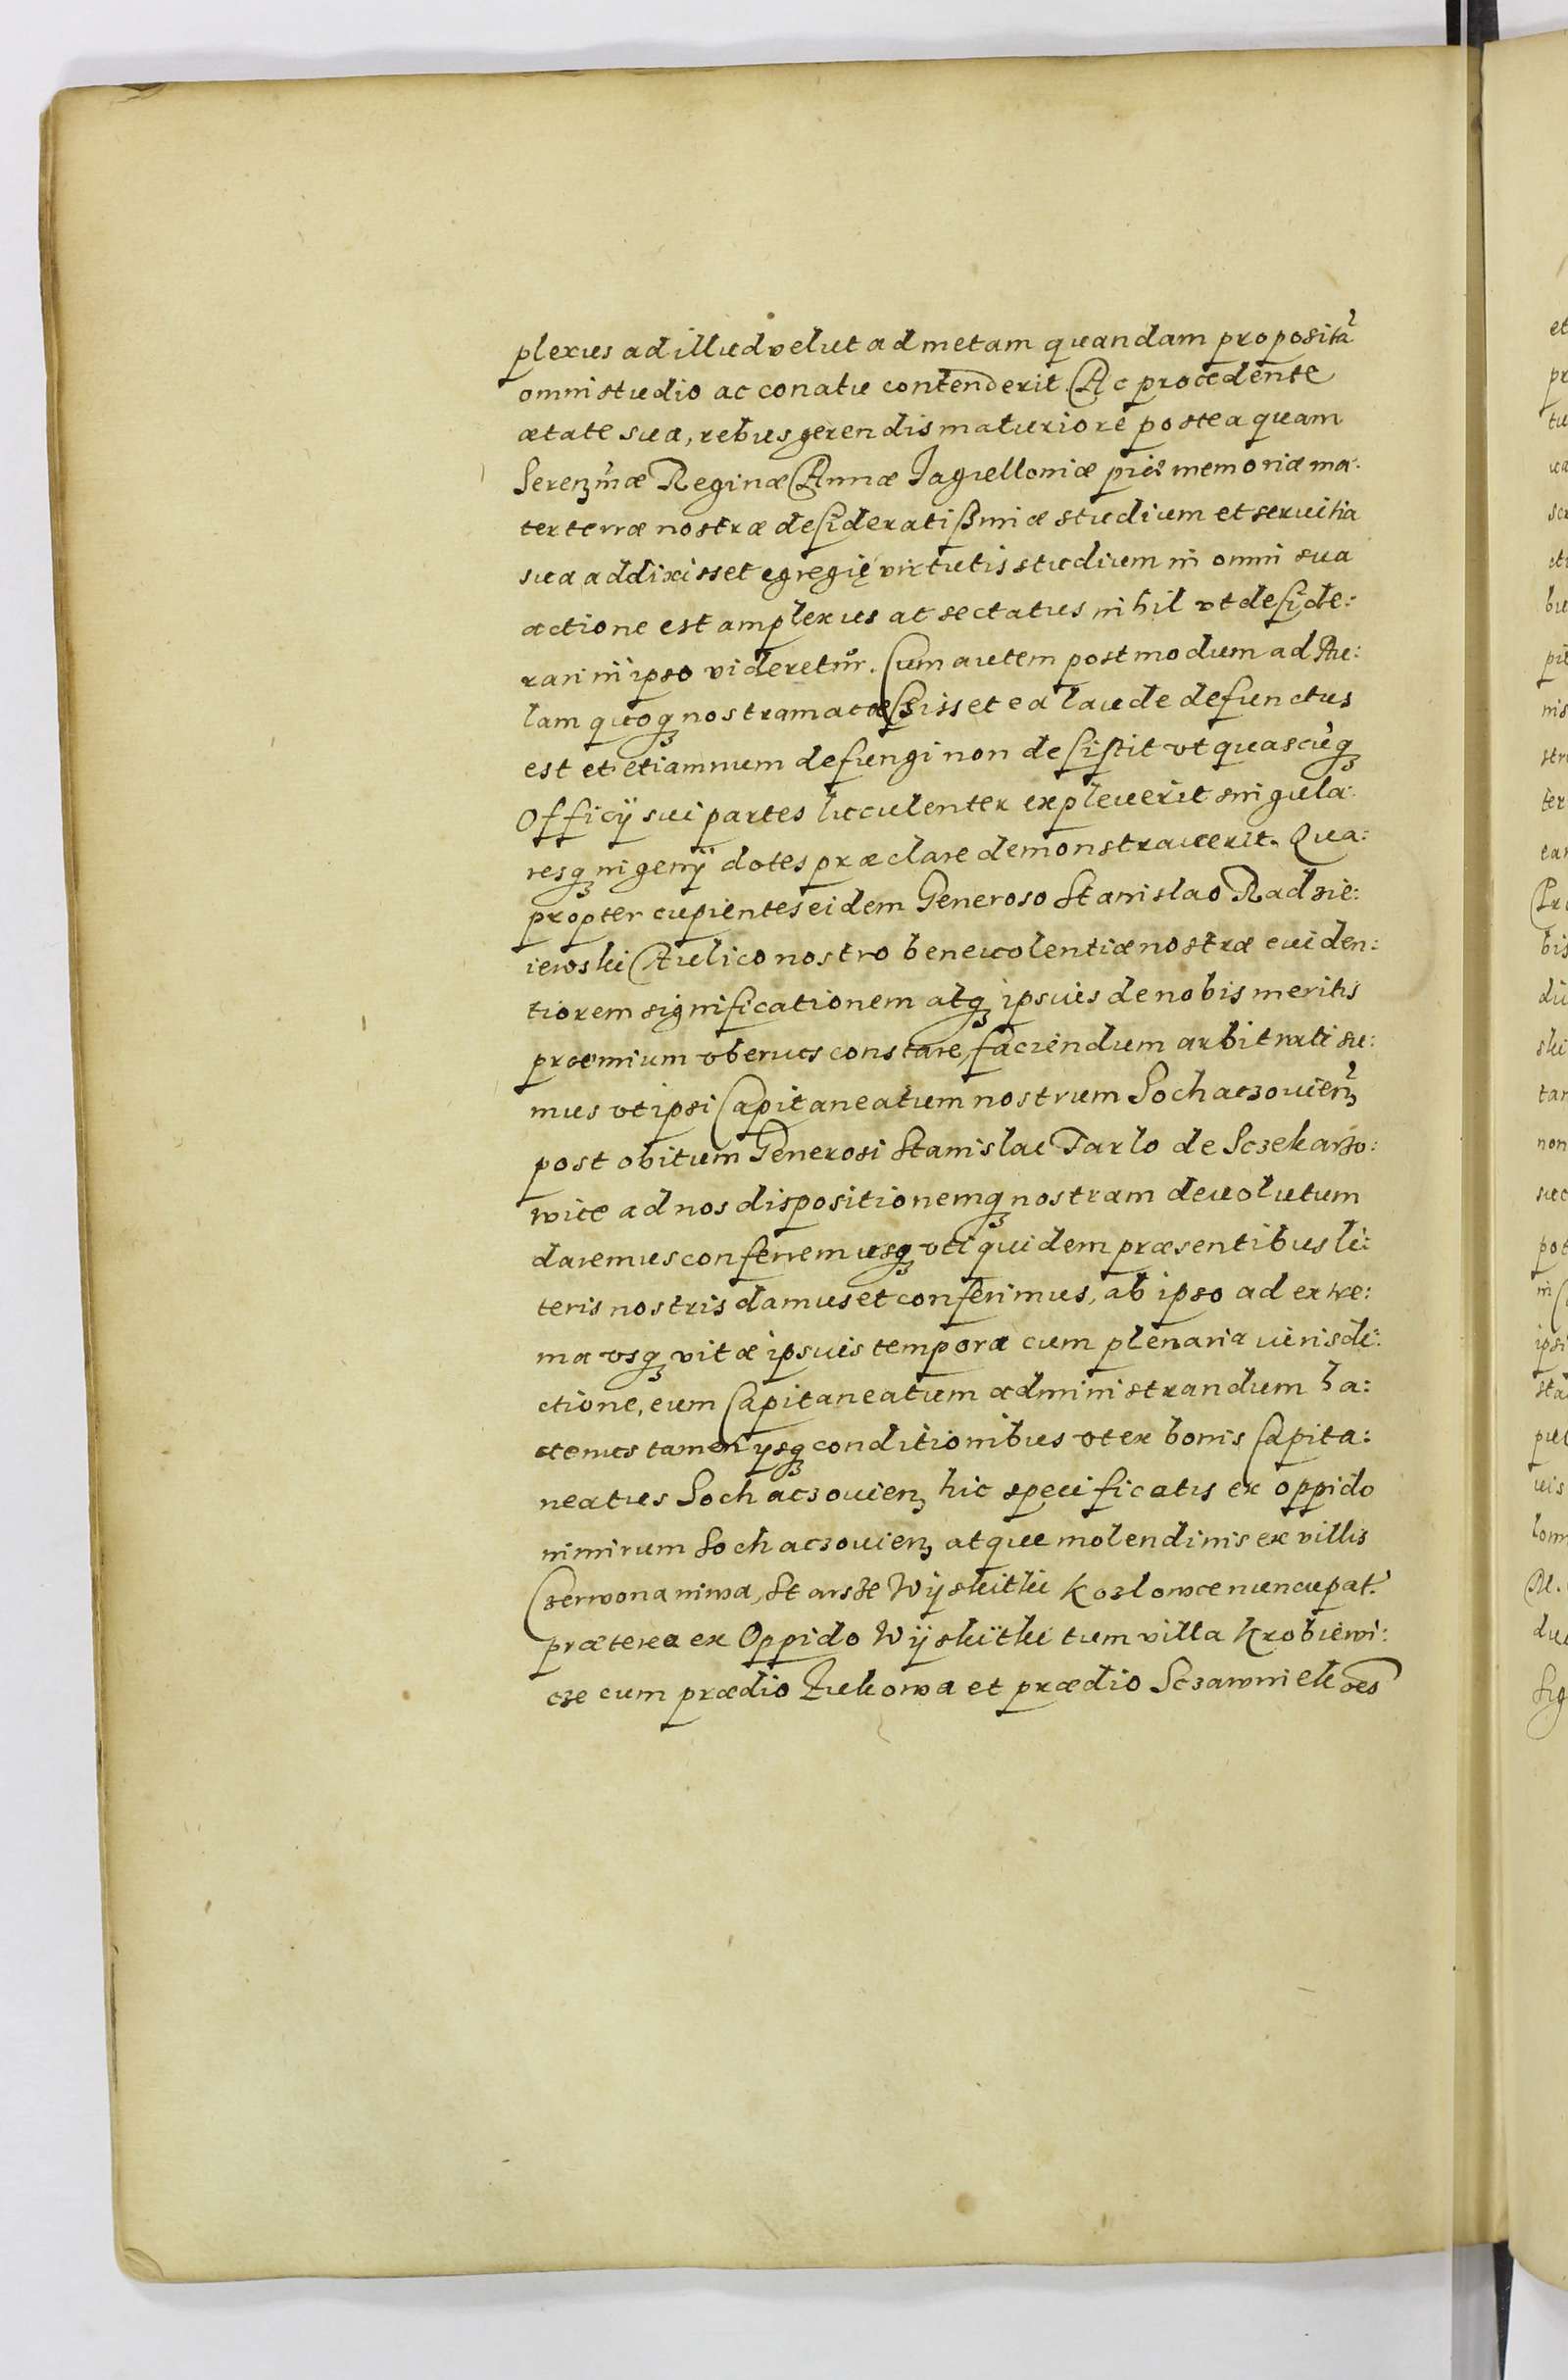 plexus ad illud velut ad metam quandam propositã
omni studio ac conatu contenderit. Ac procedente
ætate sua, rebus gerendis maturiore postea quam
Serenꝫmæ Reginæ Annæ Jagielloniæ piæ memoriæ ma:
terterræ nostræ desideratißimæ studium et seruitia
sua addixisset egregię virtutis studium in omni sua
actione est amplexus at sectatus nihil vt deside:
rari in ipso videretur. Cum autem postmodum ad Au:
lam quoqꝫ nostram accæßisset ea laude defunctus
est et etiamnum defungi non desistit vt quascũqꝫ
Officÿ sui partes luculenter expleuerit singula:
resqꝫ ingenÿ dotes præclare demonstrauerit. Qua:
propter cupientes eidem Generoso Stanislao Radzie:
iewski Aulico nostro beneuolentiæ nostræ euiden:
tiorem significationem atqꝫ ipsius de nobis meritis
præmium vberius constare, faciendum arbitrati su:
mus vt ipsi Capitaneatum nostrum Sochaczouienꝫ
post obitum Generosi Stanislai Tarlo de Sczekarzo:
wice ad nos dispositionemqꝫ nostram deuolutum
daremus conferremusqꝫ vti quidem præsentibus li:
teris nostris damus et conferimus, ab ipso ad extre:
ma vsqꝫ vitæ ipsius tempora cum plenaria iurisdi:
ctione, eum Capitaneatum administrandum ha:
ctenus tamen ÿsqꝫ conditionibus vt ex bonis Capita:
neatus Sochaczouienꝫ hic specificatis ex oppido
nimirum Sochaczouienꝫ atque molendinis ex villis
Czerwona niwa, Starske Wÿskitki Kozlowce nuncupat.
præterea ex Oppido Wÿskitki tum villa Krobiewi:
cze cum prædio Zukowa et prædio Sczawniek oẽs